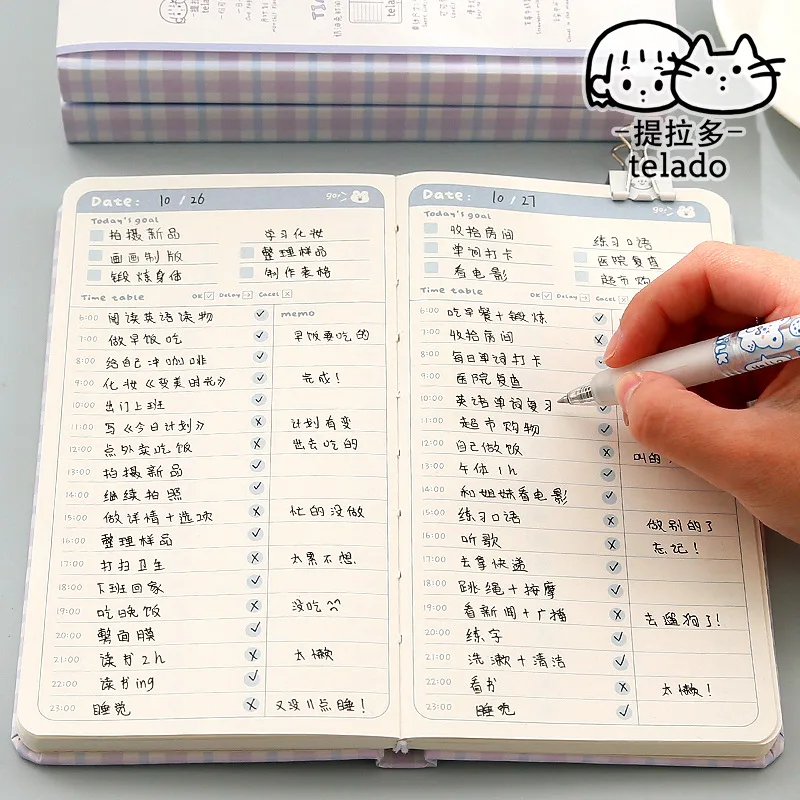 telado
-提拉多-
telado
Date: 10 / 26
go!
Today's goal
拍摄新品
学习化妆
画画制版
整理样品
锻炼身体
制作表格
Time table OK Delay Cacel
6:00 阅读英语读物 memo
7:00 做早饭吃 早饭要吃的
8:00 给自己冲咖啡
9:00 化妆《变美时光》 完成！
10:00 出门上班
11:00 写《今日计划》 计划有变
12:00 点外卖吃饭 出去吃的
13:00 拍摄新品
14:00 继续拍照
15:00 做详情+选项 忙的没做
16:00 整理样品
17:00 打扫卫生 太累不想
18:00 下班回家
19:00 吃晚饭 没吃
20:00 敷面膜
21:00 读书2h 太懒
22:00 读书ing
23:00 睡觉 又没11点睡！
Date: 10 / 27
go!
Today's goal
收拾房间
练习口语
单词打卡
医院复查
看电影
超市购
Time table OK Delay Cacel
6:00 吃早餐+锻炼
7:00 收拾房间
8:00 每日单词打卡
9:00 医院复查
10:00 英语单词复习
11:00 超市购物
12:00 自己做饭 叫的
13:00 午休1h
14:00 和姐妹看电影
15:00 练习口语 做别的了
16:00 听歌 忘记！
17:00 去拿快递
18:00 跳绳+按摩
19:00 看新闻+广播 去遛狗了！
20:00 练字
21:00 洗漱+清洁
22:00 看书 太懒！
23:00 睡觉